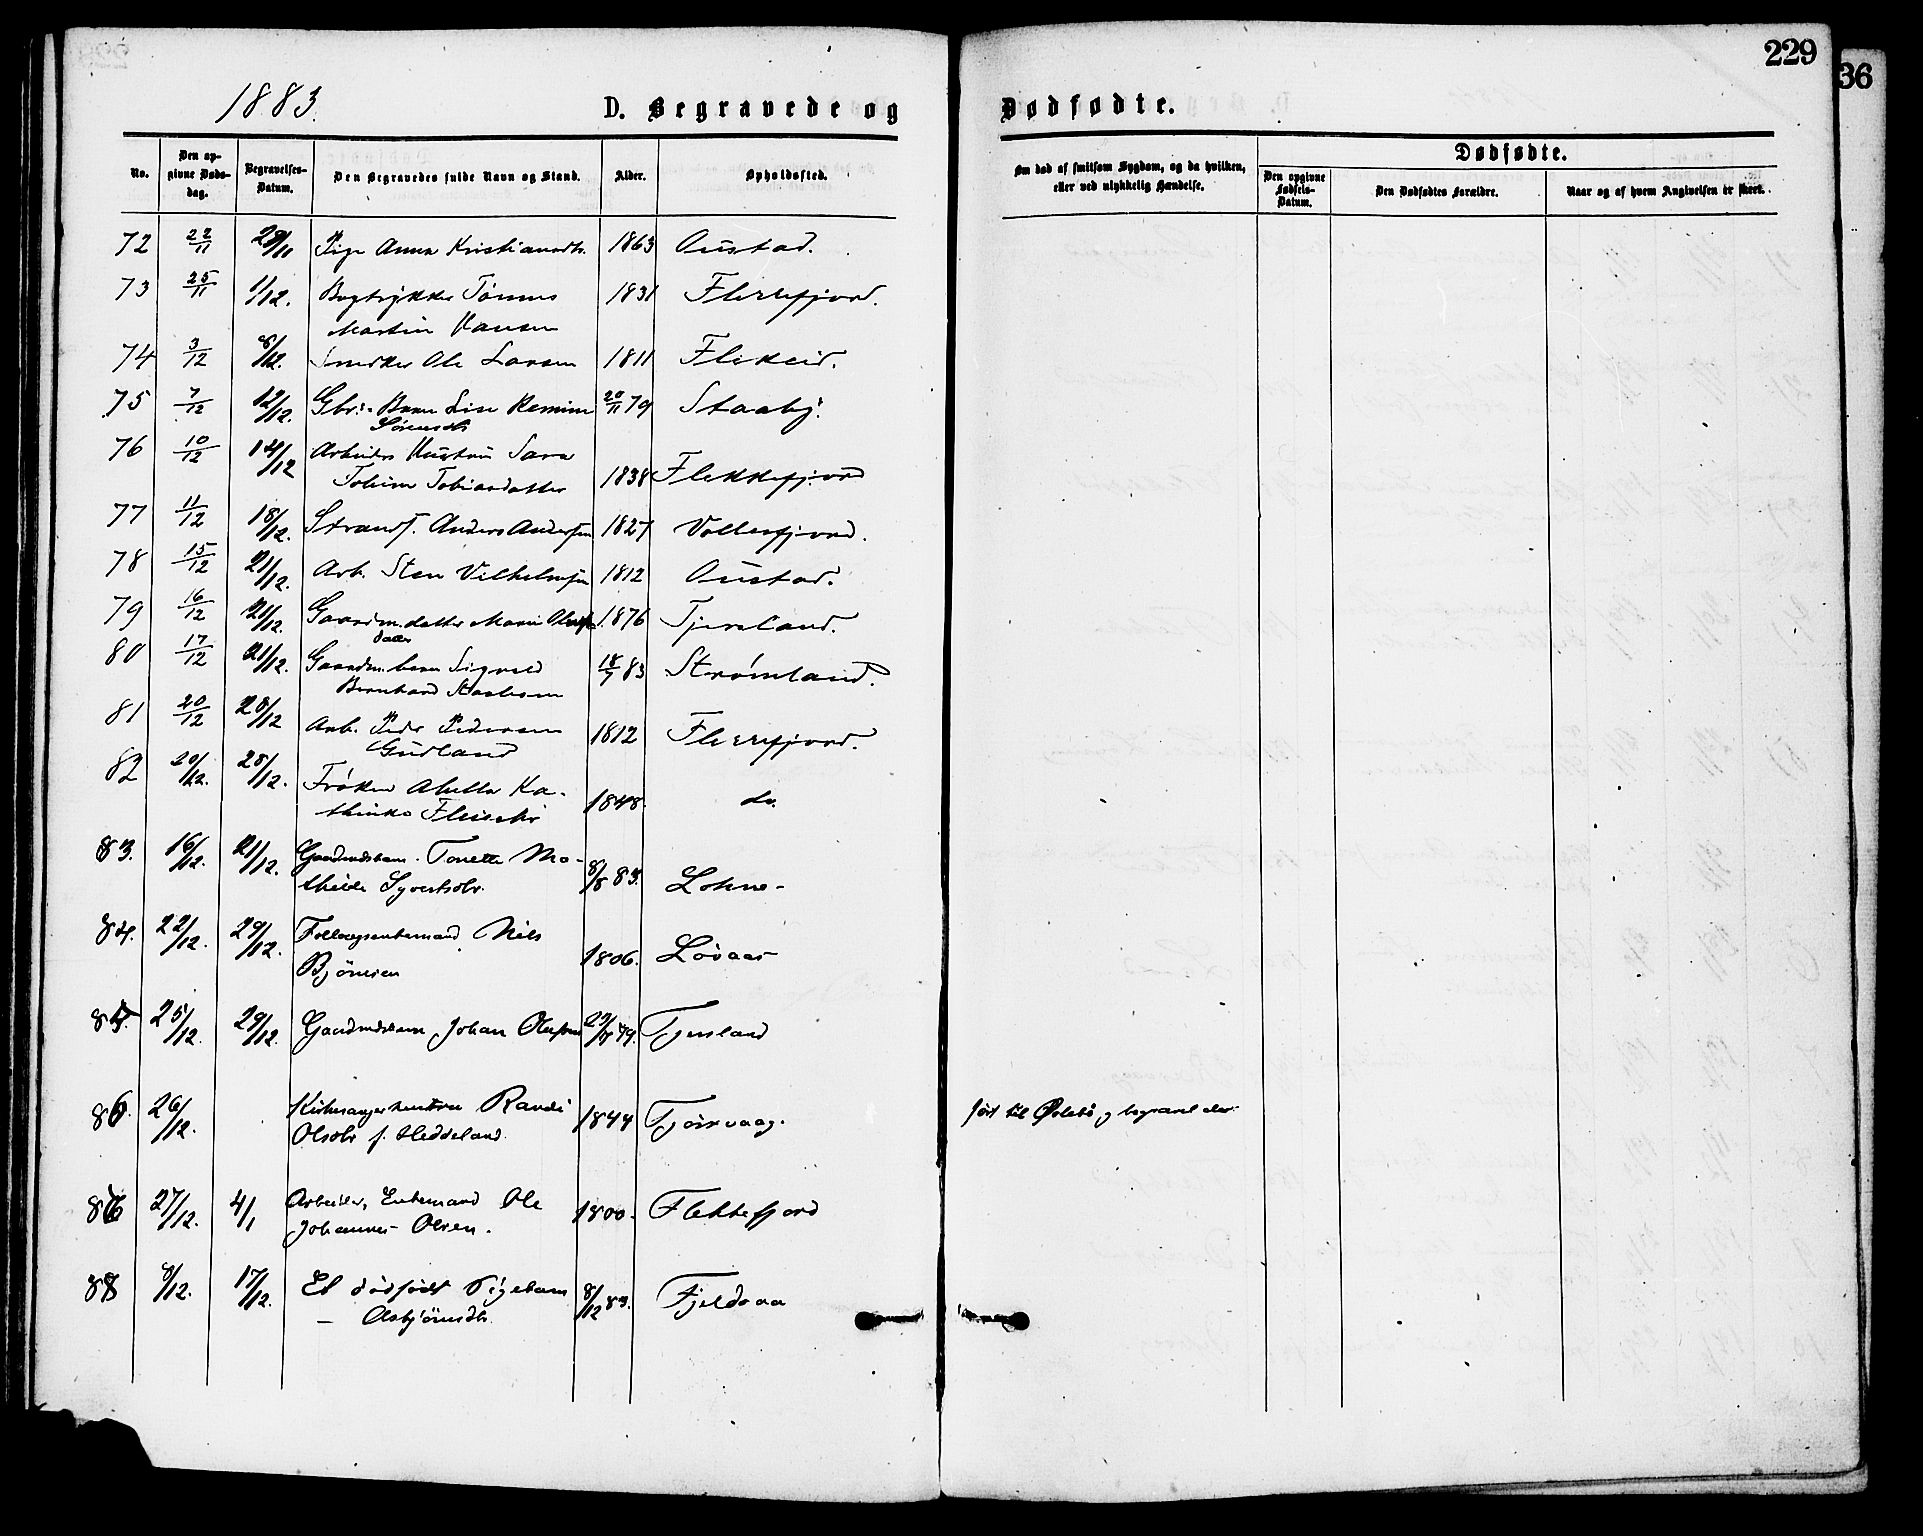 229
36
1883.
D. Begravede og
Dødfødte.
No.
Den op-
givne Døds-
dag.
Begravelses-
Datum.
Den Begravedes fulde Navn og Stand.
Alder.
Opholdssted.
Om død af smitsom Sygdom, og da hvilken,
eller ved ulykkelig Hændelse.
Dødfødte.
Den opgivne
Fødsels-
Datum.
Den Dødfødtes Forældre.
Naar og af hvem Angivelsen er skeet.
72 22/11 28/11 Pige Anna Kristiansdtr. 1863 Austad.
73 25/11 1/12. Bogtrykker Tønnes 1831 Flekkefjord.
Martin Hansen
74 3/12 8/12. Snedker Ole Larsen 1811 Flikeid.
75 7/12 12/12. Gbr:s Barn Lise Remine 20/11 79 Staaby.
Sørensdtr
76 10/12 14/12 Arbeiders Hustru Sara
Toline Tobiasdatter 1838 Flekkefjord
77 11/12 18/12. Strands. Anders Andersen 1827 Vollesfjord.
78 15/12 21/12. Arb. Sten Vilhelmsen 1812 Austad.
79 16/12 21/12. Gaardm. datter Marie 1876 Tjersland.
datter
80 17/12 21/12. Gaardm. barn Sigvald 18/7 83 Strømland.
Bernhard
81 20/12 28/12 Arb. Peder Pedersen 1812 Flekkefjord.
Gudland
82 20/12. 28/12. Frøken Ka-
thinka Fleischer 1848. do.
83. 16/12. 21/12. Gaardmdsbarn. Tonette Ma-
thilde Syvertsdtr. 8/8 83. Lohne-
84. 22/12. 29/12. Føllaugsenkemand Nils
Bjørnsen 1806. Løvaas
85. 25/12. 29/12. Gaardmdsbarn Johan Olufsen 79. Tjersland
86. 26/12. Kirkesangerhustru Randi
Olsdtr f. Heddeland. 1844 Tjørsvaag.
ført til Øslebø og begravet der.
86 27/12. 4/1 Arbeider, Enkemand Ole
Johannes Olsen. 1800. Flekkefjord
88 8/12. 17/12. Et dødfødt Pigebarn 8/12 83. Fjeldsaa
— Asbjørnsdtr.